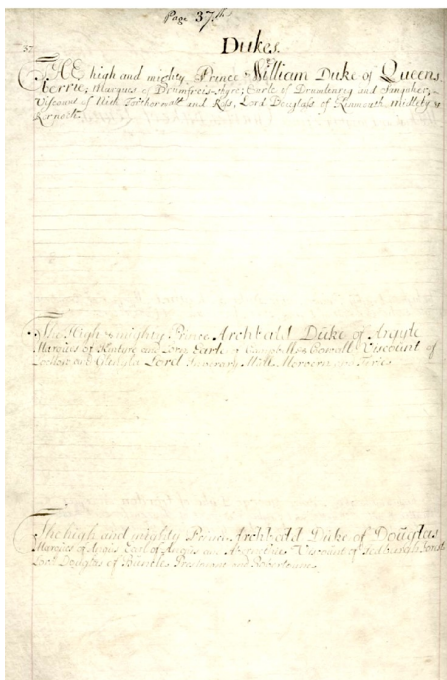 Page 37th
37
Dukes.
THE high and mighty Prince William Duke of Queens
berrie, Marques of Drumfreis-shyre; Earle of Drumlanrig and Sanquhar,
Viscount of Nith Torthorwatt and Ross, Lord Douglass of Kinmonth midleby &
Dornock.
The High & mighty Prince Archbald Duke of Argyle
Marques of Kintyre and Lorn Earle of Campbell & Cowall Viscount of
Lochow and Glenyla Lord Inverary Mull Morvern and Tirie
The high and mighty Prince Archbald Duke of Douglas
Marques of Angus Earl of Angus and Abernethie Viscount of Jedburgh Forest
Lord Douglas of Bunkle Prestoun and Robertoun.